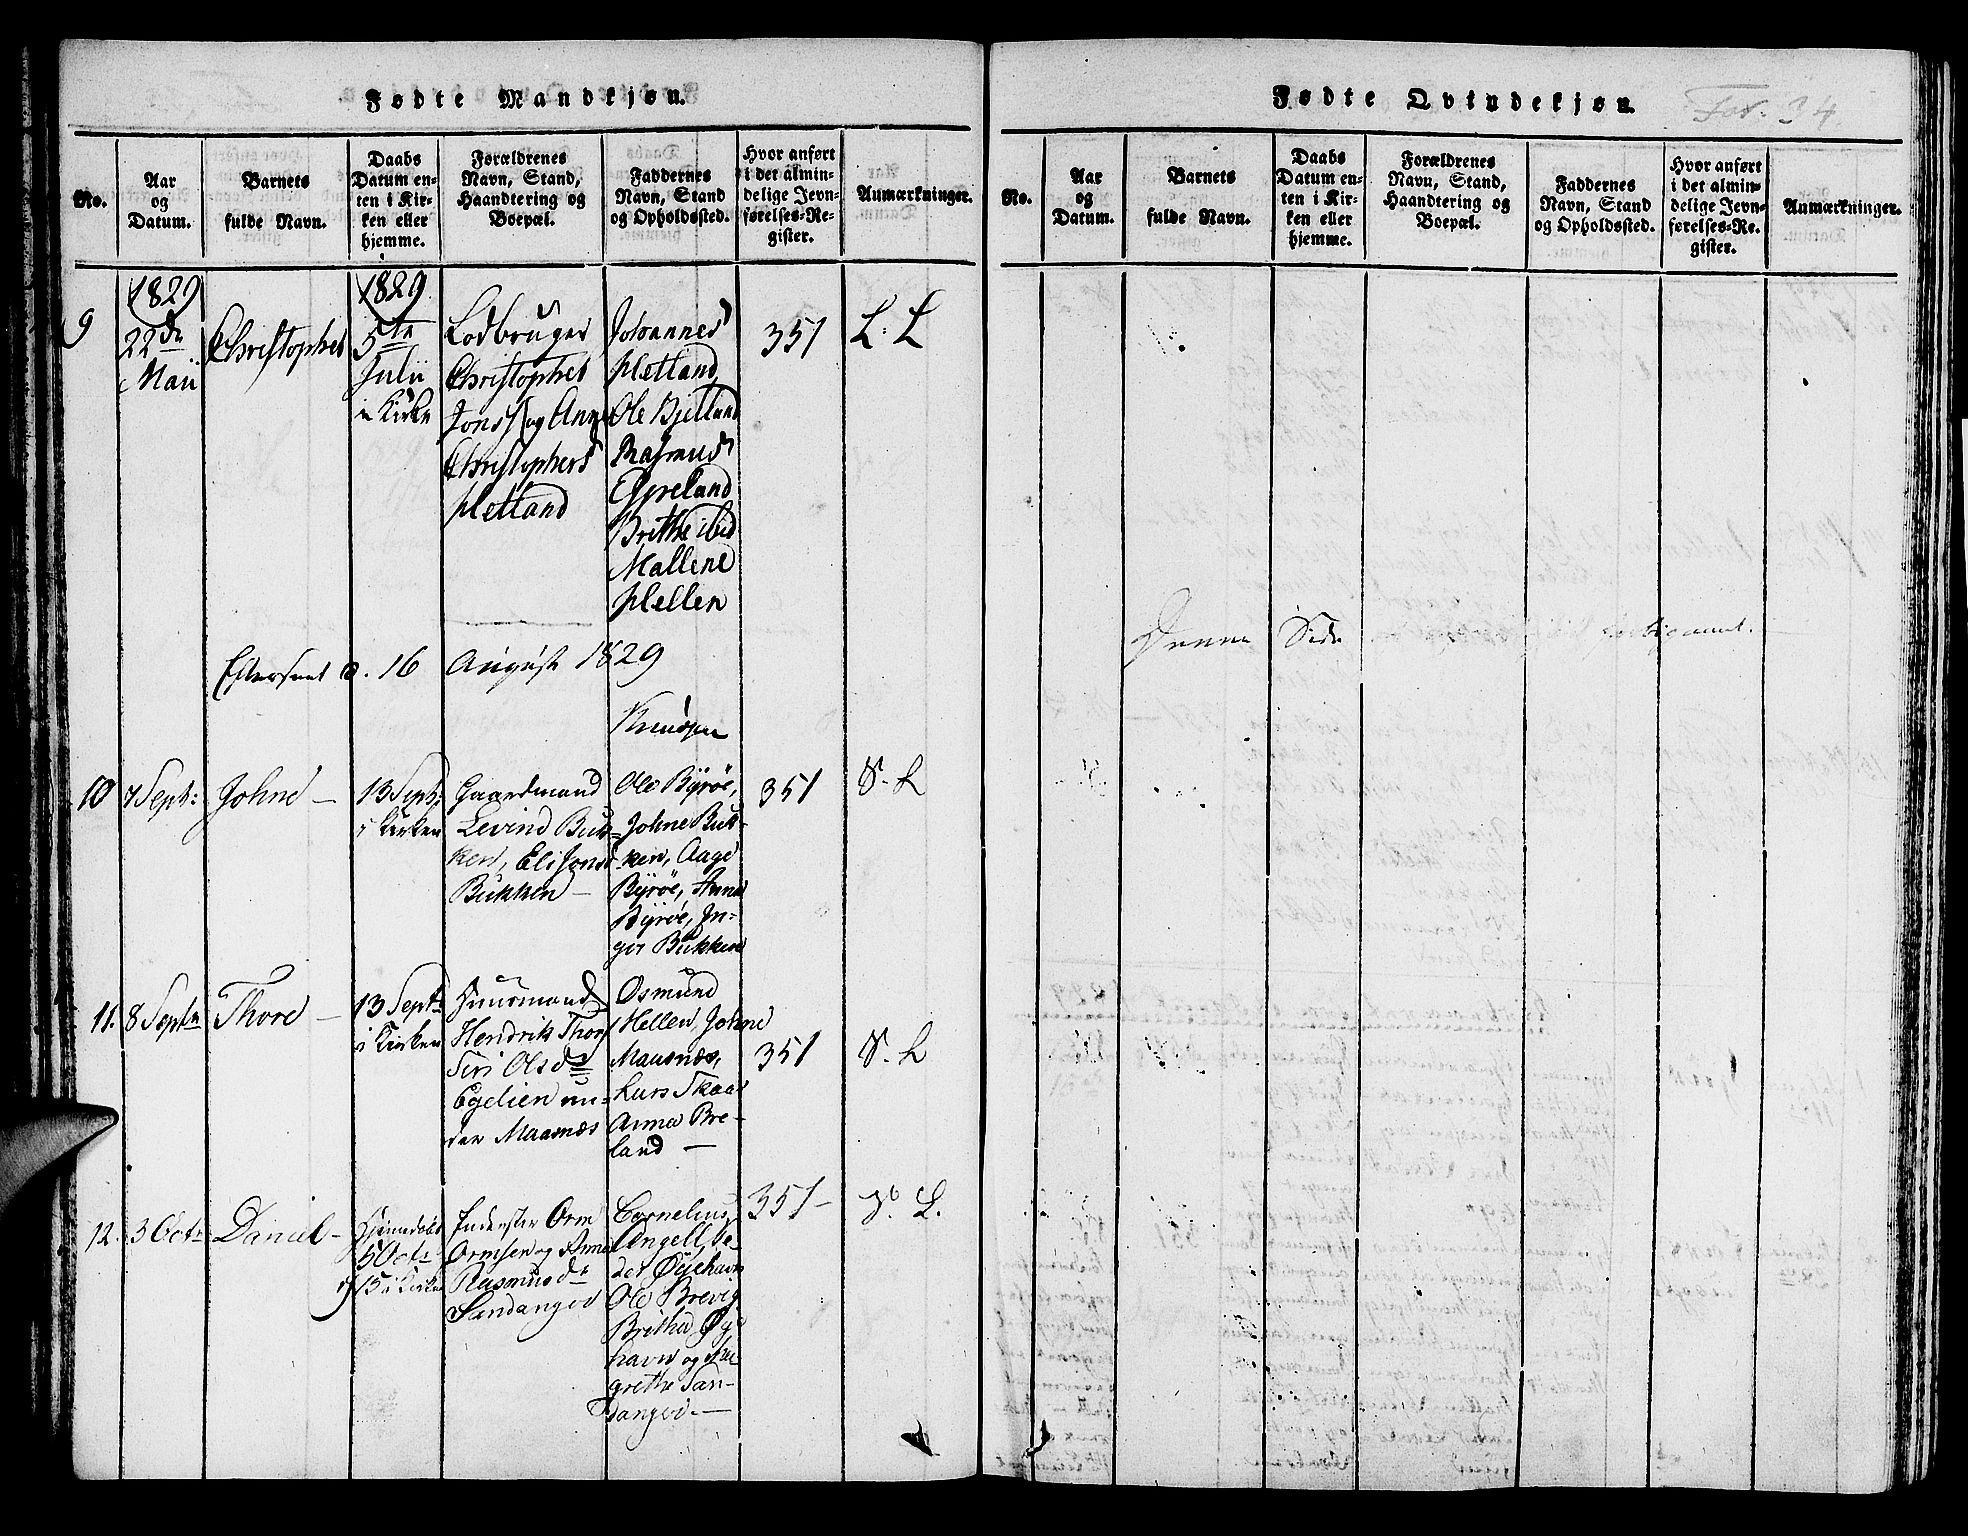 Fødte Mandkjøn.
No.
Aar
og
Datum.
Barnets
fulde Navn.
Daabs
Datum en-
ten i Kir-
ken eller
hjemme.
Forældrenes
Navn, Stand,
Haandtering og
Boepæl.
Faddernes
Navn, Stand
og Opholdssted.
Hvor anført
i det almin-
delige Jevn-
førelses-Re-
gister.
Anmærkninger.
9
1829
22de
Maii
Christopher
1829
5te
Julii
i Kirke
Lodbruger
Christopher
Jons. og Anne
Christophers
Hetland
Johannes
Hetland,
Ole Bjelland
Rasmus
Egreland
Brithe ibid
Mallene
Hellen
351
L: L
Efterseet d. 16 August 1829
10
7 Sept:
Johne —
13 Sept:
i Kirken
Gaardmand
Levind Buk-
ken, Eli Jons
Bukken —
Ole Byrøe,
Johne Buk-
ken, Aage
Byrøe, Anna
Byrøe, In-
ger Bukken
351
S. L
11.
8 Septr
Thore —
13 Septr
i Kirken
Huusmand
Hendrik Thors
Siri Olsdr
Egelien un-
der Maasnæs
Osmund
Hellen, Johne
Maasnæs,
Lars Skaar
Anna Bre-
land —
351
S. L
12.
3 Octr
Daniel —
Hjemdøbt
5 Octr
15 i Kirken
Inderster Orm
Ormsen og Anna
Rasmusdr
Sandanger
Cornelius
Angell, Pe-
der Øyehavn
Ole Brevig
Britha Øy-
havn og Mar-
grethe San-
danger. —
351 —
L.
Fødte Qvindekjøn.
Fol. 34
No.
Aar
og
Datum.
Barnets
fulde Navn.
Daabs
Datum en-
ten i Kir-
ken eller
hjemme.
Forældrenes
Navn, Stand,
Haandtering og
Boepæl.
Faddernes
Navn, Stand
og Opholdssted.
Hvor anført
i det almin-
delige Jevn-
førelses-Re-
gister.
Anmærkninger.
Denne Side